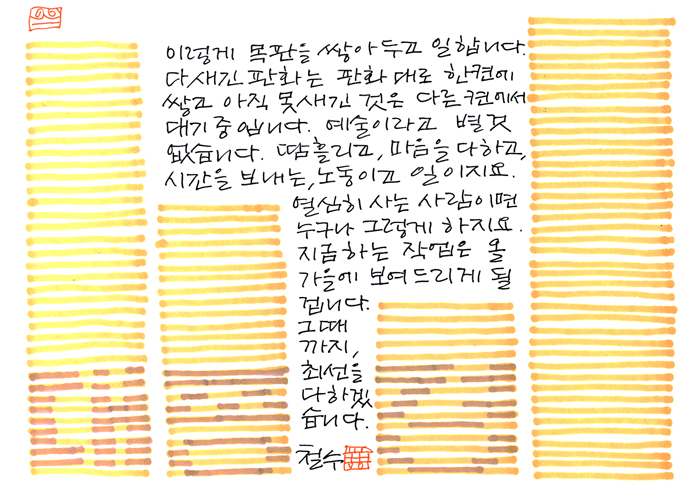 이렇게 목판을 쌓아두고 일합니다.
다새긴 판화는 판화대로 한켠에
쌓고 아직 못새긴 것은 다른켠에서
대기중입니다. 예술이라고 별것
없습니다. 땀흘리고, 마음을 다하고,
시간을 보내는, 노동이고 일이지요.
열심히 사는 사람이면
누구나 그렇게 하지요.
지금하는 작업은 올
가을에 보여드리게 될
겁니다.
그때
까지,
최선을
다하겠
습니다.
철수